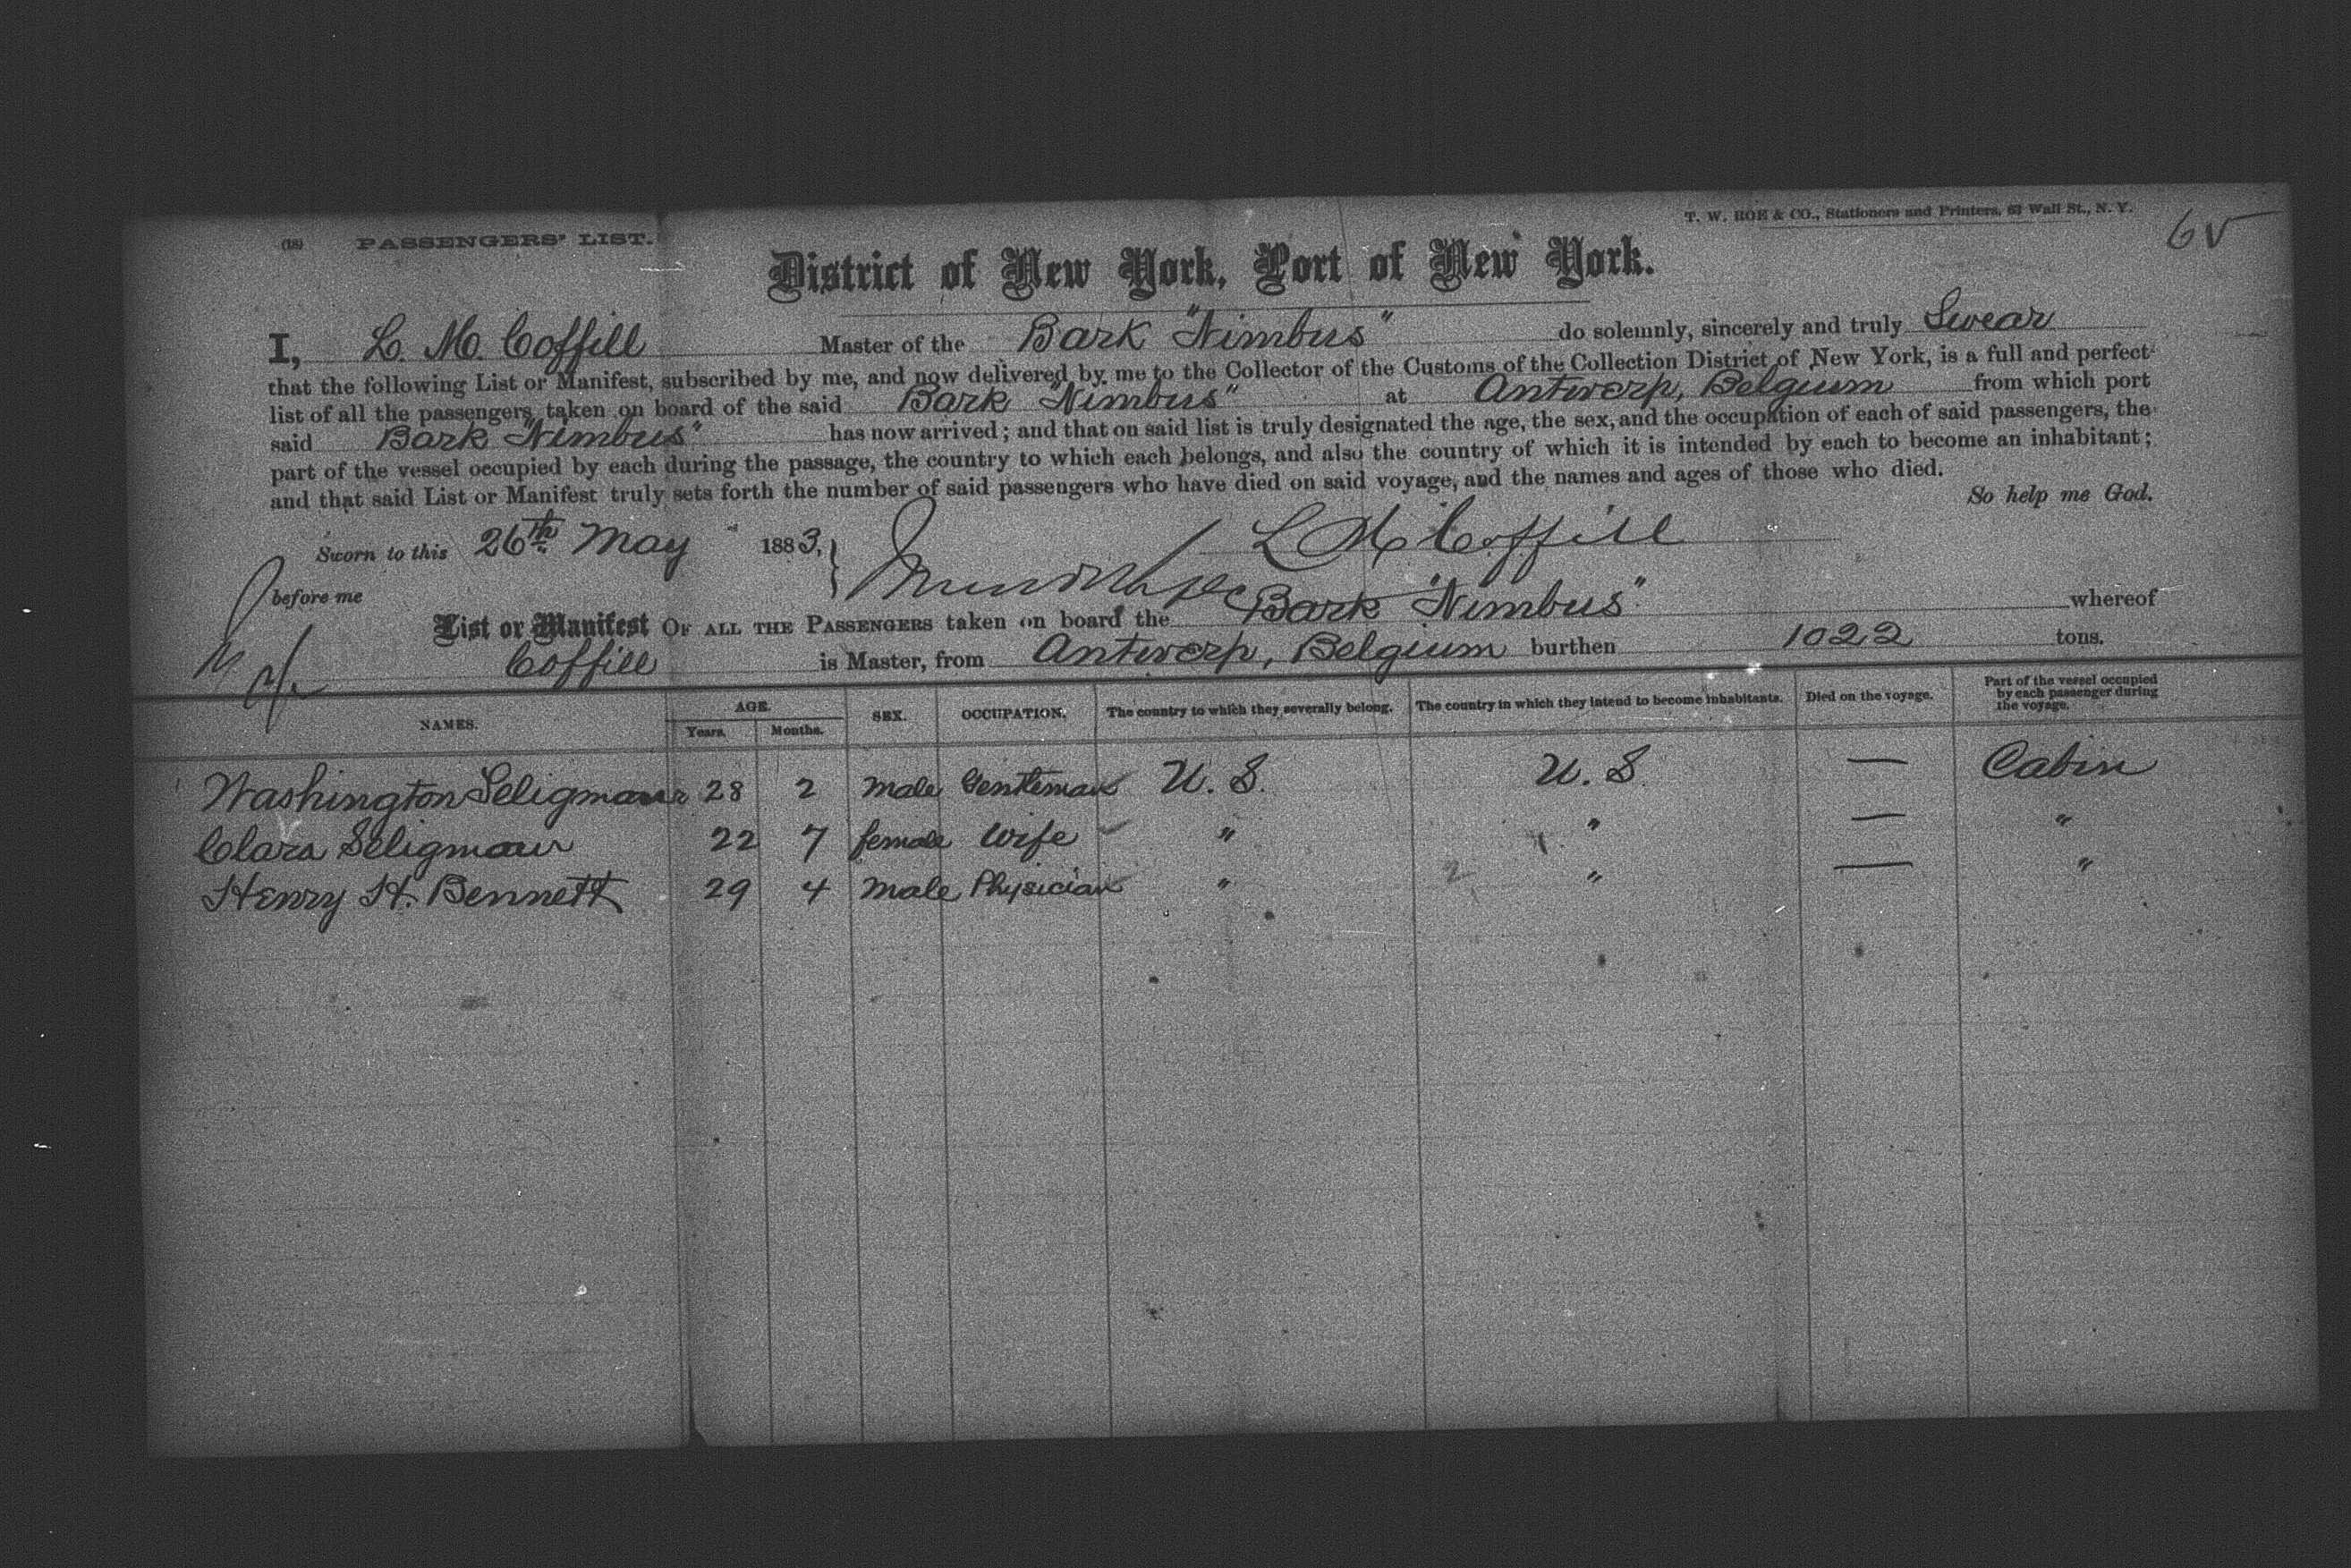 T. W. ROE & CO., Stationers and Printers, 63 Wall St., N. Y.
(18) PASSENGERS' LIST.
6
District of New York, Port of New York.
I, L. M. Coffill Master of the Bark "Nimbus" do solemnly, sincerely and truly Swear
that the following List or Manifest, subscribed by me, and now delivered by me to the Collector of the Customs of the Collection District of New York, is a full and perfect
list of all the passengers taken on board of the said Bark "Nimbus" at Antwerp, Belgium from which port
said Bark "Nimbus" has now arrived; and that on said list is truly designated the age, the sex, and the occupation of each of said passengers, the
part of the vessel occupied by each during the passage, the country to which each belongs, and also the country of which it is intended by each to become an inhabitant;
and that said List or Manifest truly sets forth the number of said passengers who have died on said voyage, and the names and ages of those who died.
So help me God.
Sworn to this 26th May 1883, L M Coffill
before me
List or Manifest OF ALL THE PASSENGERS taken on board the Bark "Nimbus" whereof
Coffill is Master, from Antwerp, Belgium burthen 1022 tons.
NAMES. AGE. Years. Months. SEX. OCCUPATION. The country to which they severally belong. The country in which they intend to become inhabitants. Died on the voyage. Part of the vessel occupied by each passenger during the voyage.
Washington Seligman 28 2 male Gentleman U. S. U. S. — Cabin
Clara Seligman 22 7 female Wife " " — "
Henry H. Bennett 29 4 male Physician " 2 " — "